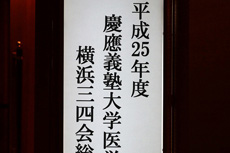 平成25年度
慶應義塾大学医学
横浜三四会総